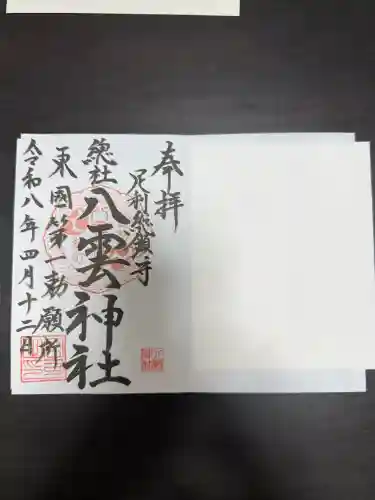 奉拝
足利総鎮守
總社八雲神社
東國第一勅願所
令和八年四月十二日